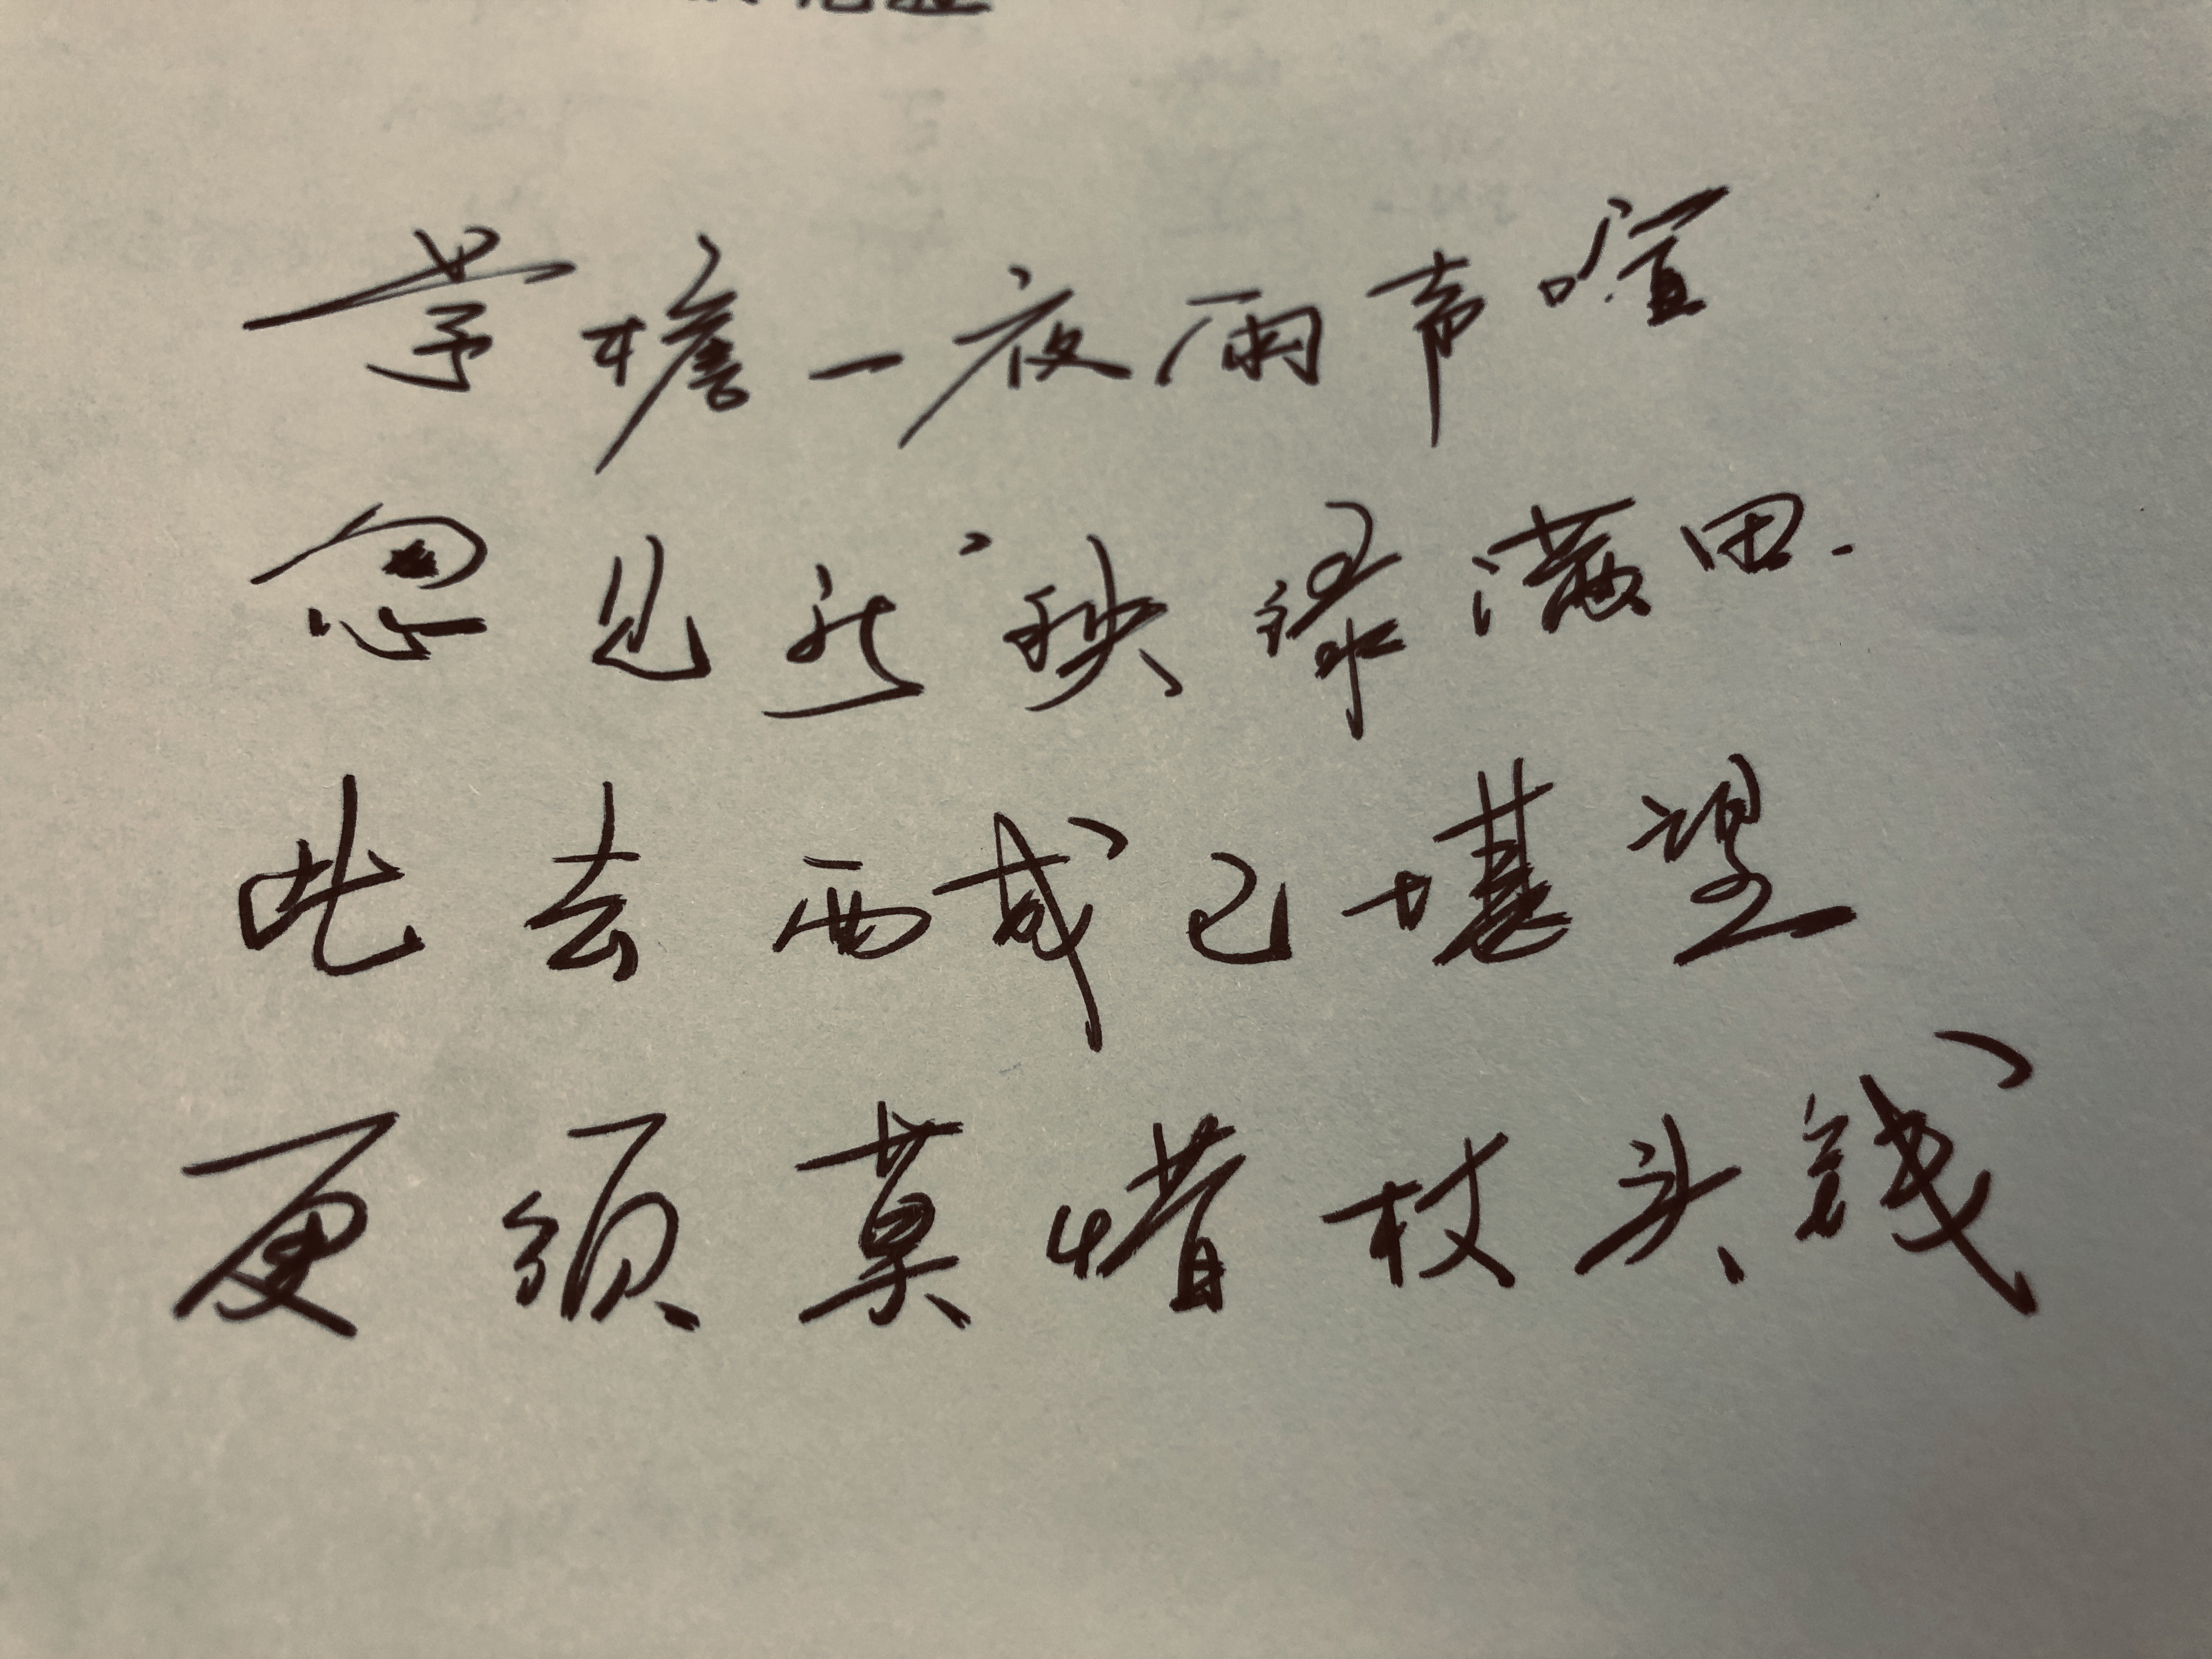 茅檐一夜雨声喧
忽见新秧绿满田.
此去西成已堪望
更须莫惜杖头钱